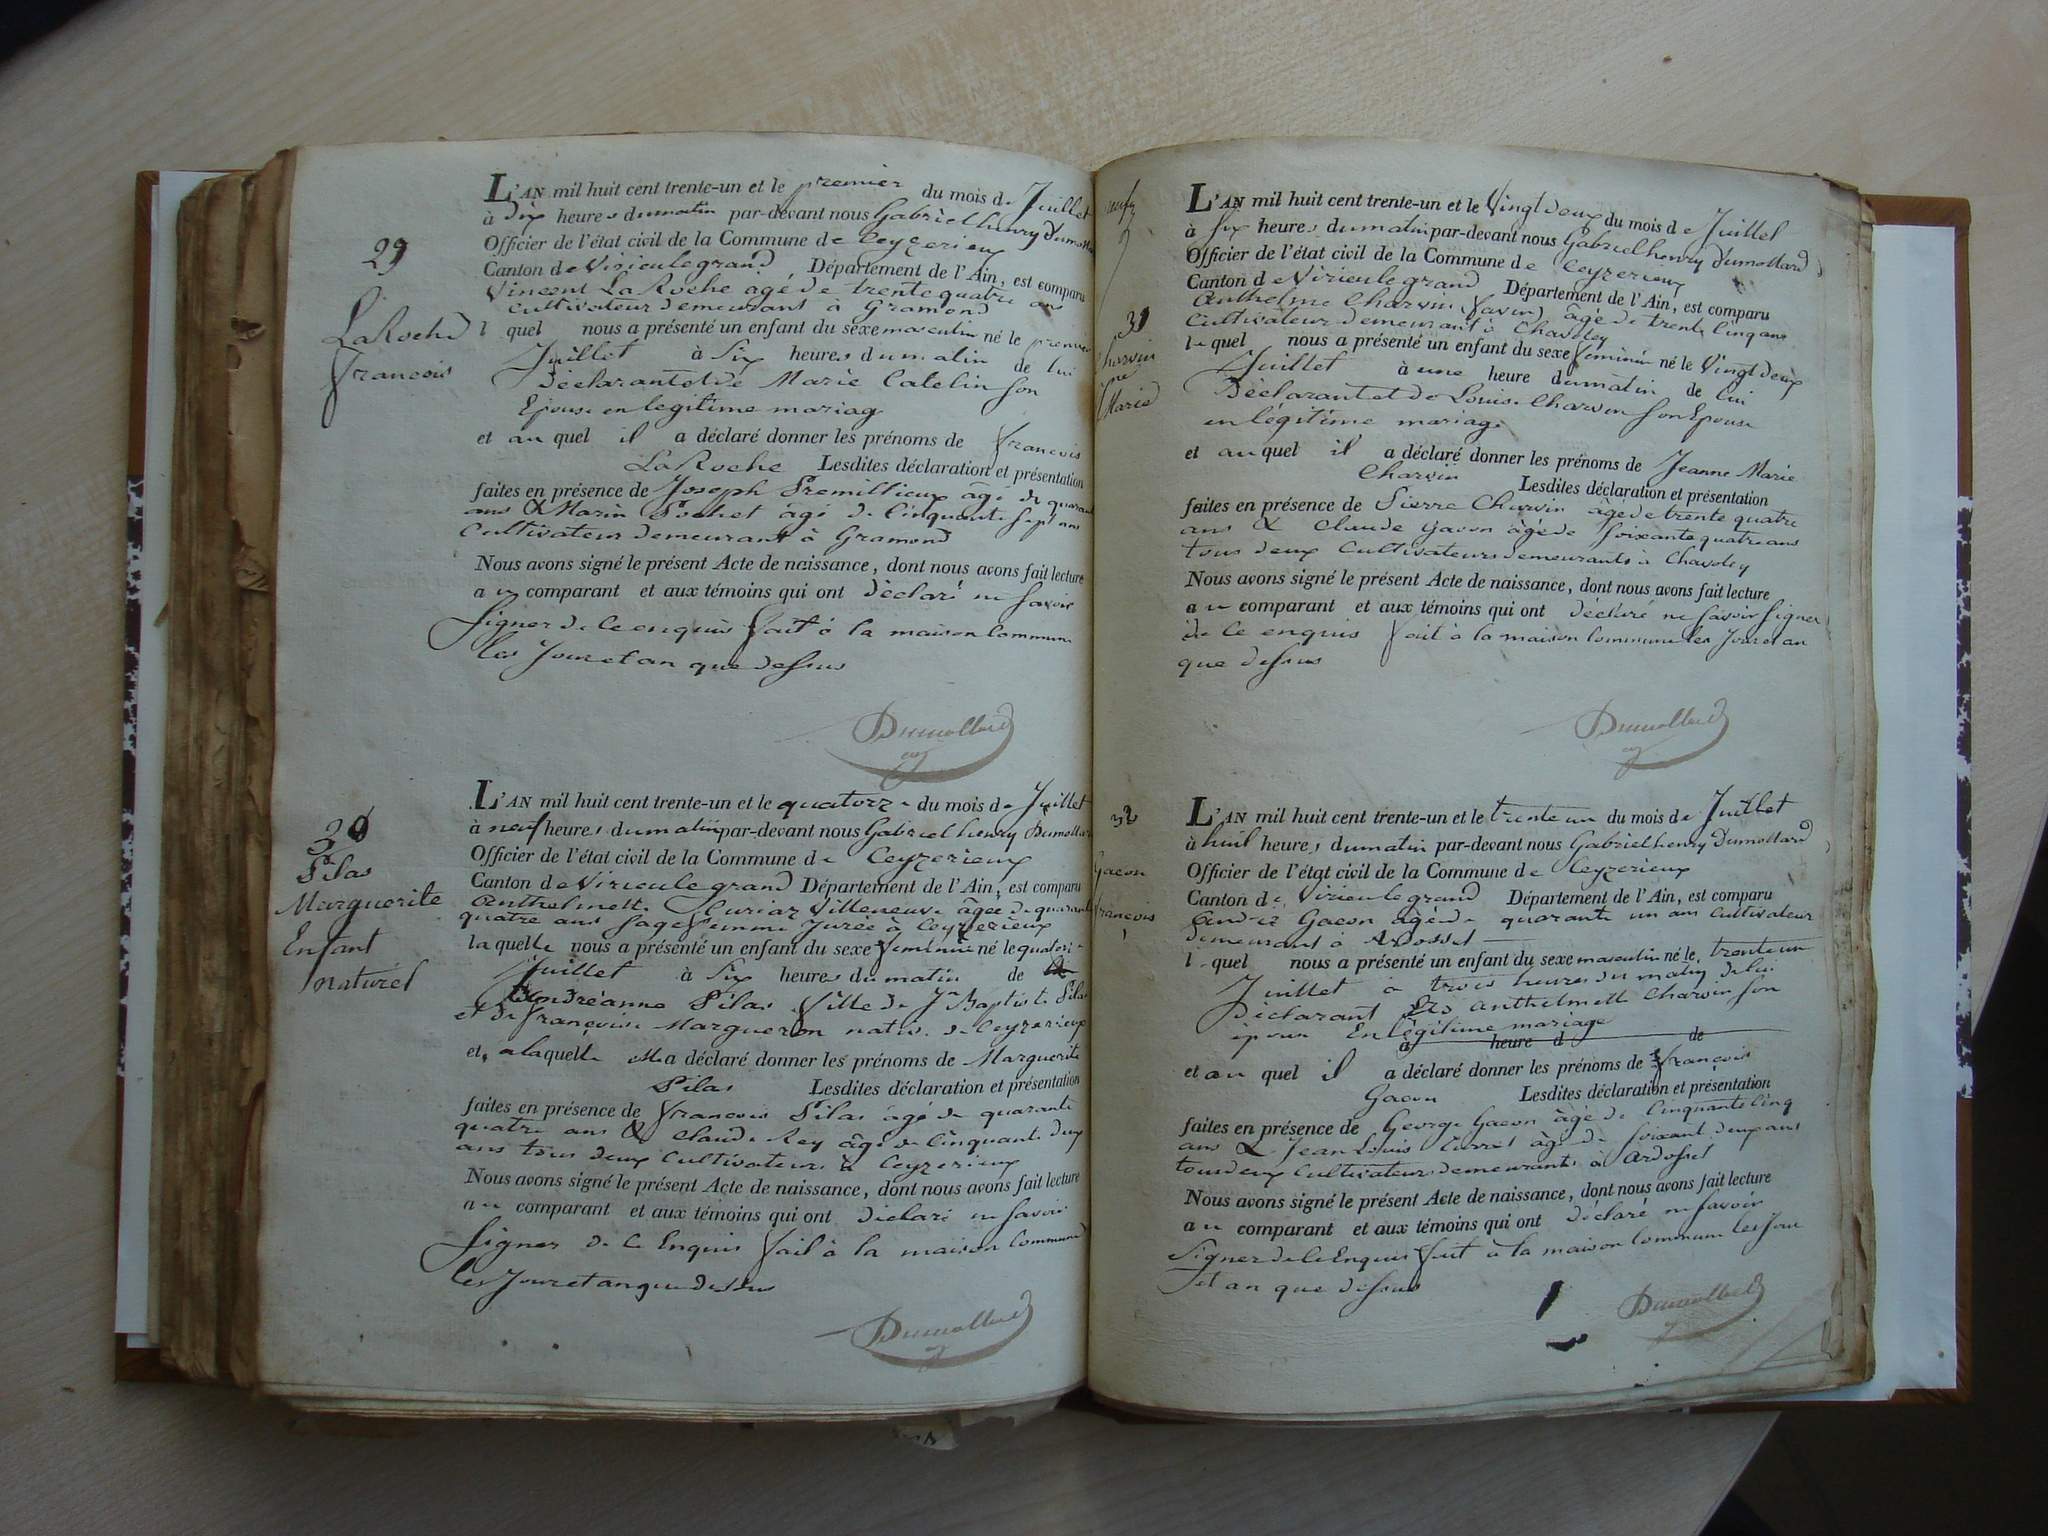 29
LaRoche
francois
L'AN mil huit cent trente-un et le premier du mois de Juillet
à Dix heures dumatin par-devant nous Gabriel henry Dumollard
Officier de l'état civil de la Commune de Ceyzerieux
Canton de Virieulegrand, Département de l'Ain, est comparu
Vincent LaRoche âgé de trentequatre ans
Cultivateur demeurant à Gramond
lequel nous a présenté un enfant du sexe masculin né le premier
Juillet à Six heures dumatin de lui
Déclarant et de Marie Catelin son
Epouse en legitime mariag
et au quel il a déclaré donner les prénoms de francois
LaRoche Lesdites déclaration et présentation
faites en présence de Joseph Premillieux âgé de quarante
ans & Marin Pochet âgé de Cinquante sept ans
Cultivateur demeurant à Gramond
Nous avons signé le présent Acte de naissance, dont nous avons fait lecture
au comparant et aux témoins qui ont déclaré ne savoir
Signer de Ce enquis fait à la maison Commune
les Jour et an que dessus
Dumollard
30
Pilas
Marguerite
Enfant
naturel
L'AN mil huit cent trente-un et le quatorze du mois de Juillet
à neuf heures dumatin par-devant nous Gabriel henry Dumollard
Officier de l'état civil de la Commune de Ceyzerieux
Canton de Virieulegrand Département de l'Ain, est comparu
Anthelmette Villeneuve âgée de quarante
quatre ans Sage femme Jurée à Ceyzerieux
laquelle nous a présenté un enfant du sexe feminin né le quatorze
Juillet à Six heures du matin de
Andréanne Pilas fille de Jn Baptiste Pilas
et de françoise Margueron native de Ceyzerieux
et, a laquelle elle a déclaré donner les prénoms de Marguerite
Pilas Lesdites déclaration et présentation
faites en présence de francois Pilas âgé de quarante
quatre ans & Claude Rey âgé de Cinquante deux
ans tous deux Cultivateurs à Ceyzerieux
Nous avons signé le présent Acte de naissance, dont nous avons fait lecture
au comparant et aux témoins qui ont déclaré ne savoir
Signer de Ce Enquis fait à la maison Commune
les Jour et an que dessus
Dumollard
31
Charvin
Jne
Marie
L'AN mil huit cent trente-un et le Vingt deux du mois de Juillet
à Six heures dumatin par-devant nous Gabriel henry Dumollard
Officier de l'état civil de la Commune de Ceyzerieux
Canton de Virieulegrand Département de l'Ain, est comparu
Anthelme Charvin (favin) âgé de trente Cinq ans
Cultivateur demeurant à Chavoley
lequel nous a présenté un enfant du sexe feminin né le Vingt deux
Juillet à une heure dumatin de lui
Déclarant et de Louise Charvin son Epouse
en légitime mariage
et au quel il a déclaré donner les prénoms de Jeanne Marie
Charvin Lesdites déclaration et présentation
faites en présence de Pierre Charvin âgé de trente quatre
ans & Claude Gacon âgé de soixante quatre ans
tous deux Cultivateurs demeurants à Chavoley
Nous avons signé le présent Acte de naissance, dont nous avons fait lecture
au comparant et aux témoins qui ont déclaré ne savoir signer
de Ce enquis fait à la maison Commune les Jour et an
que dessus
Dumollard
32
Gacon
francois
L'AN mil huit cent trente-un et le trente un du mois de Juillet
à huit heures dumatin par-devant nous Gabriel henry Dumollard
Officier de l'état civil de la Commune de Ceyzerieux
Canton de Virieulegrand Département de l'Ain, est comparu
André Gacon âgé de quarante un ans Cultivateur
demeurant à Ardosset
lequel nous a présenté un enfant du sexe masculin né le trente un
Juillet a trois heures du matin de lui
Déclarant et d anthelmette Charvin son
épouse En légitime mariage
à heure d de
et au quel il a déclaré donner les prénoms de francois
Gacon Lesdites déclaration et présentation
faites en présence de George Gacon âgé de Cinquante Cinq
ans & Jean Louis Curret âgé de soixante deux ans
tous deux Cultivateurs demeurants à Ardosset
Nous avons signé le présent Acte de naissance, dont nous avons fait lecture
au comparant et aux témoins qui ont déclaré ne savoir
Signer de Ce Enquis fait à la maison Commune les Jour
et an que dessus
Dumollard